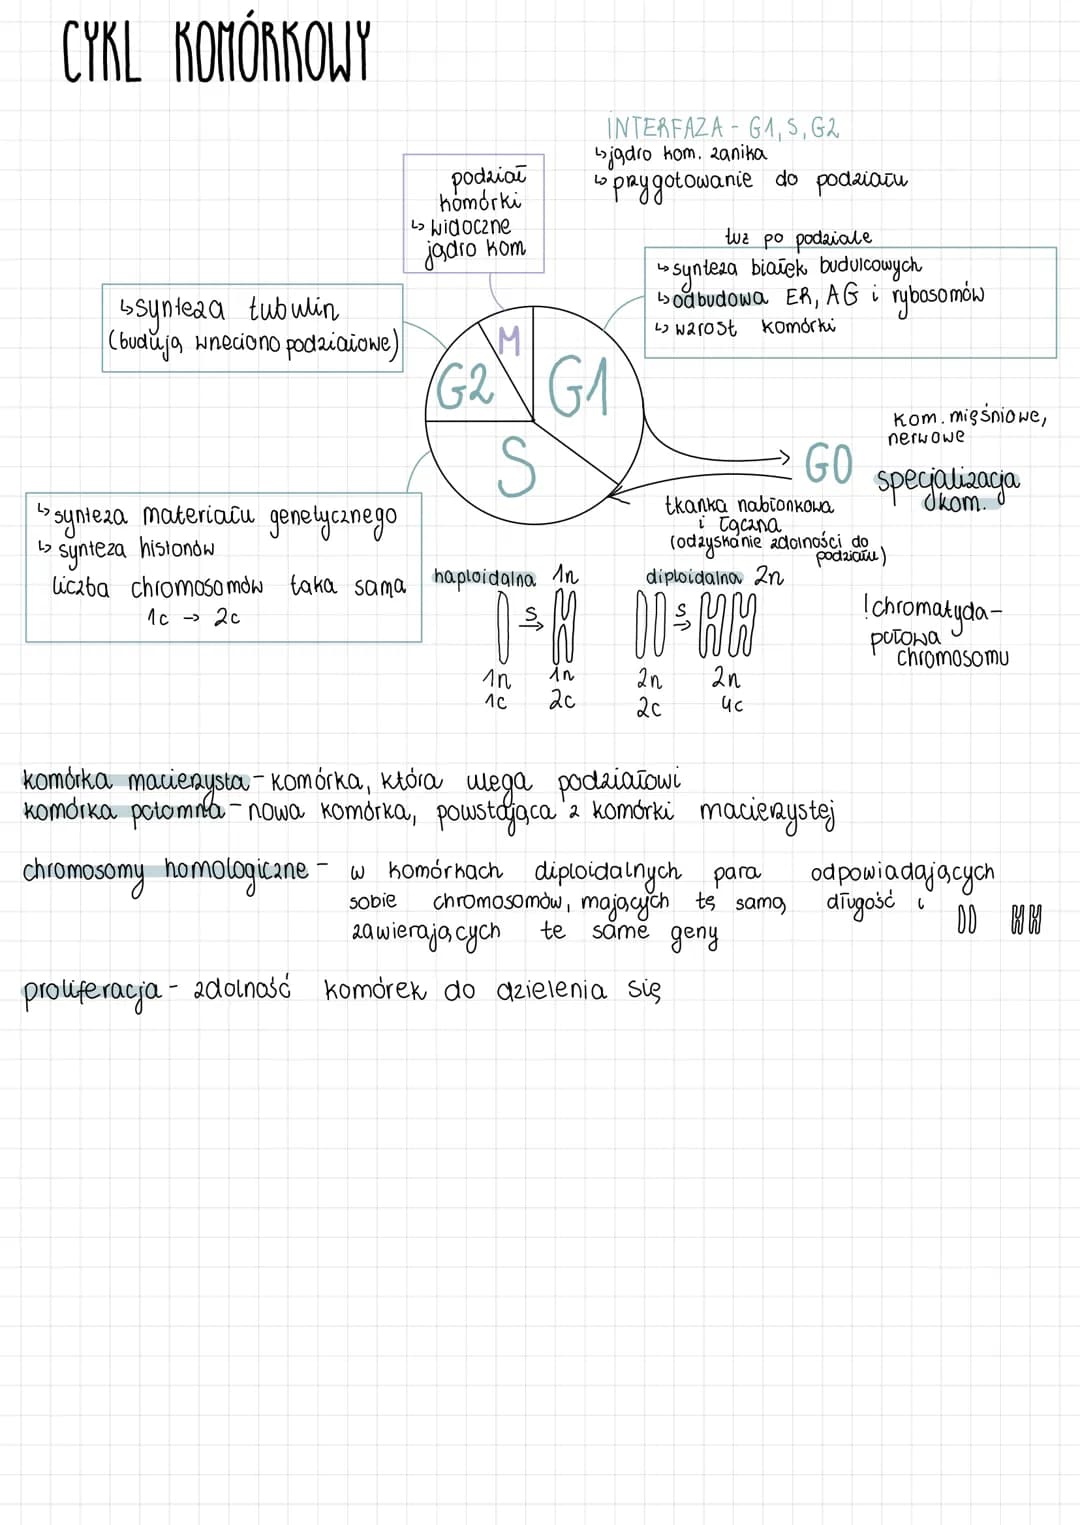 CYKL KOMÓRKOWY
INTERFAZA - G1, S, G2
↳ jądro kom. zanika
↳ przygotowanie do podziału
podział
komórki
↳ widoczne
jądro kom
tuż po podziale
↳ synteza białek budulcowych
↳ odbudowa ER, AG i rybosomów
↳ wzrost komórki
↳ synteza tubulin
(budują wrzeciono podziałowe)
M
G2
G1
S
G0
kom. mięśniowe,
nerwowe
specjalizacja
kom.
tkanka nabłonkowa
i łączna
(odzyskanie zdolności do
podziału)
↳ synteza materiału genetycznego
↳ synteza histonów
liczba chromosomów taka sama
1c → 2c
haploidalna 1n
S
1n 1n
1c 2c
diploidalna 2n
S
2n 2n
2c 4c
! chromatyda -
połowa
chromosomu
komórka macierzysta - komórka, która ulega podziałowi
komórka potomna - nowa komórka, powstająca z komórki macierzystej
chromosomy homologiczne - w komórkach diploidalnych para odpowiadających
sobie chromosomów, mających tę samą długość i
zawierających te same geny
proliferacja - zdolność komórek do dzielenia się